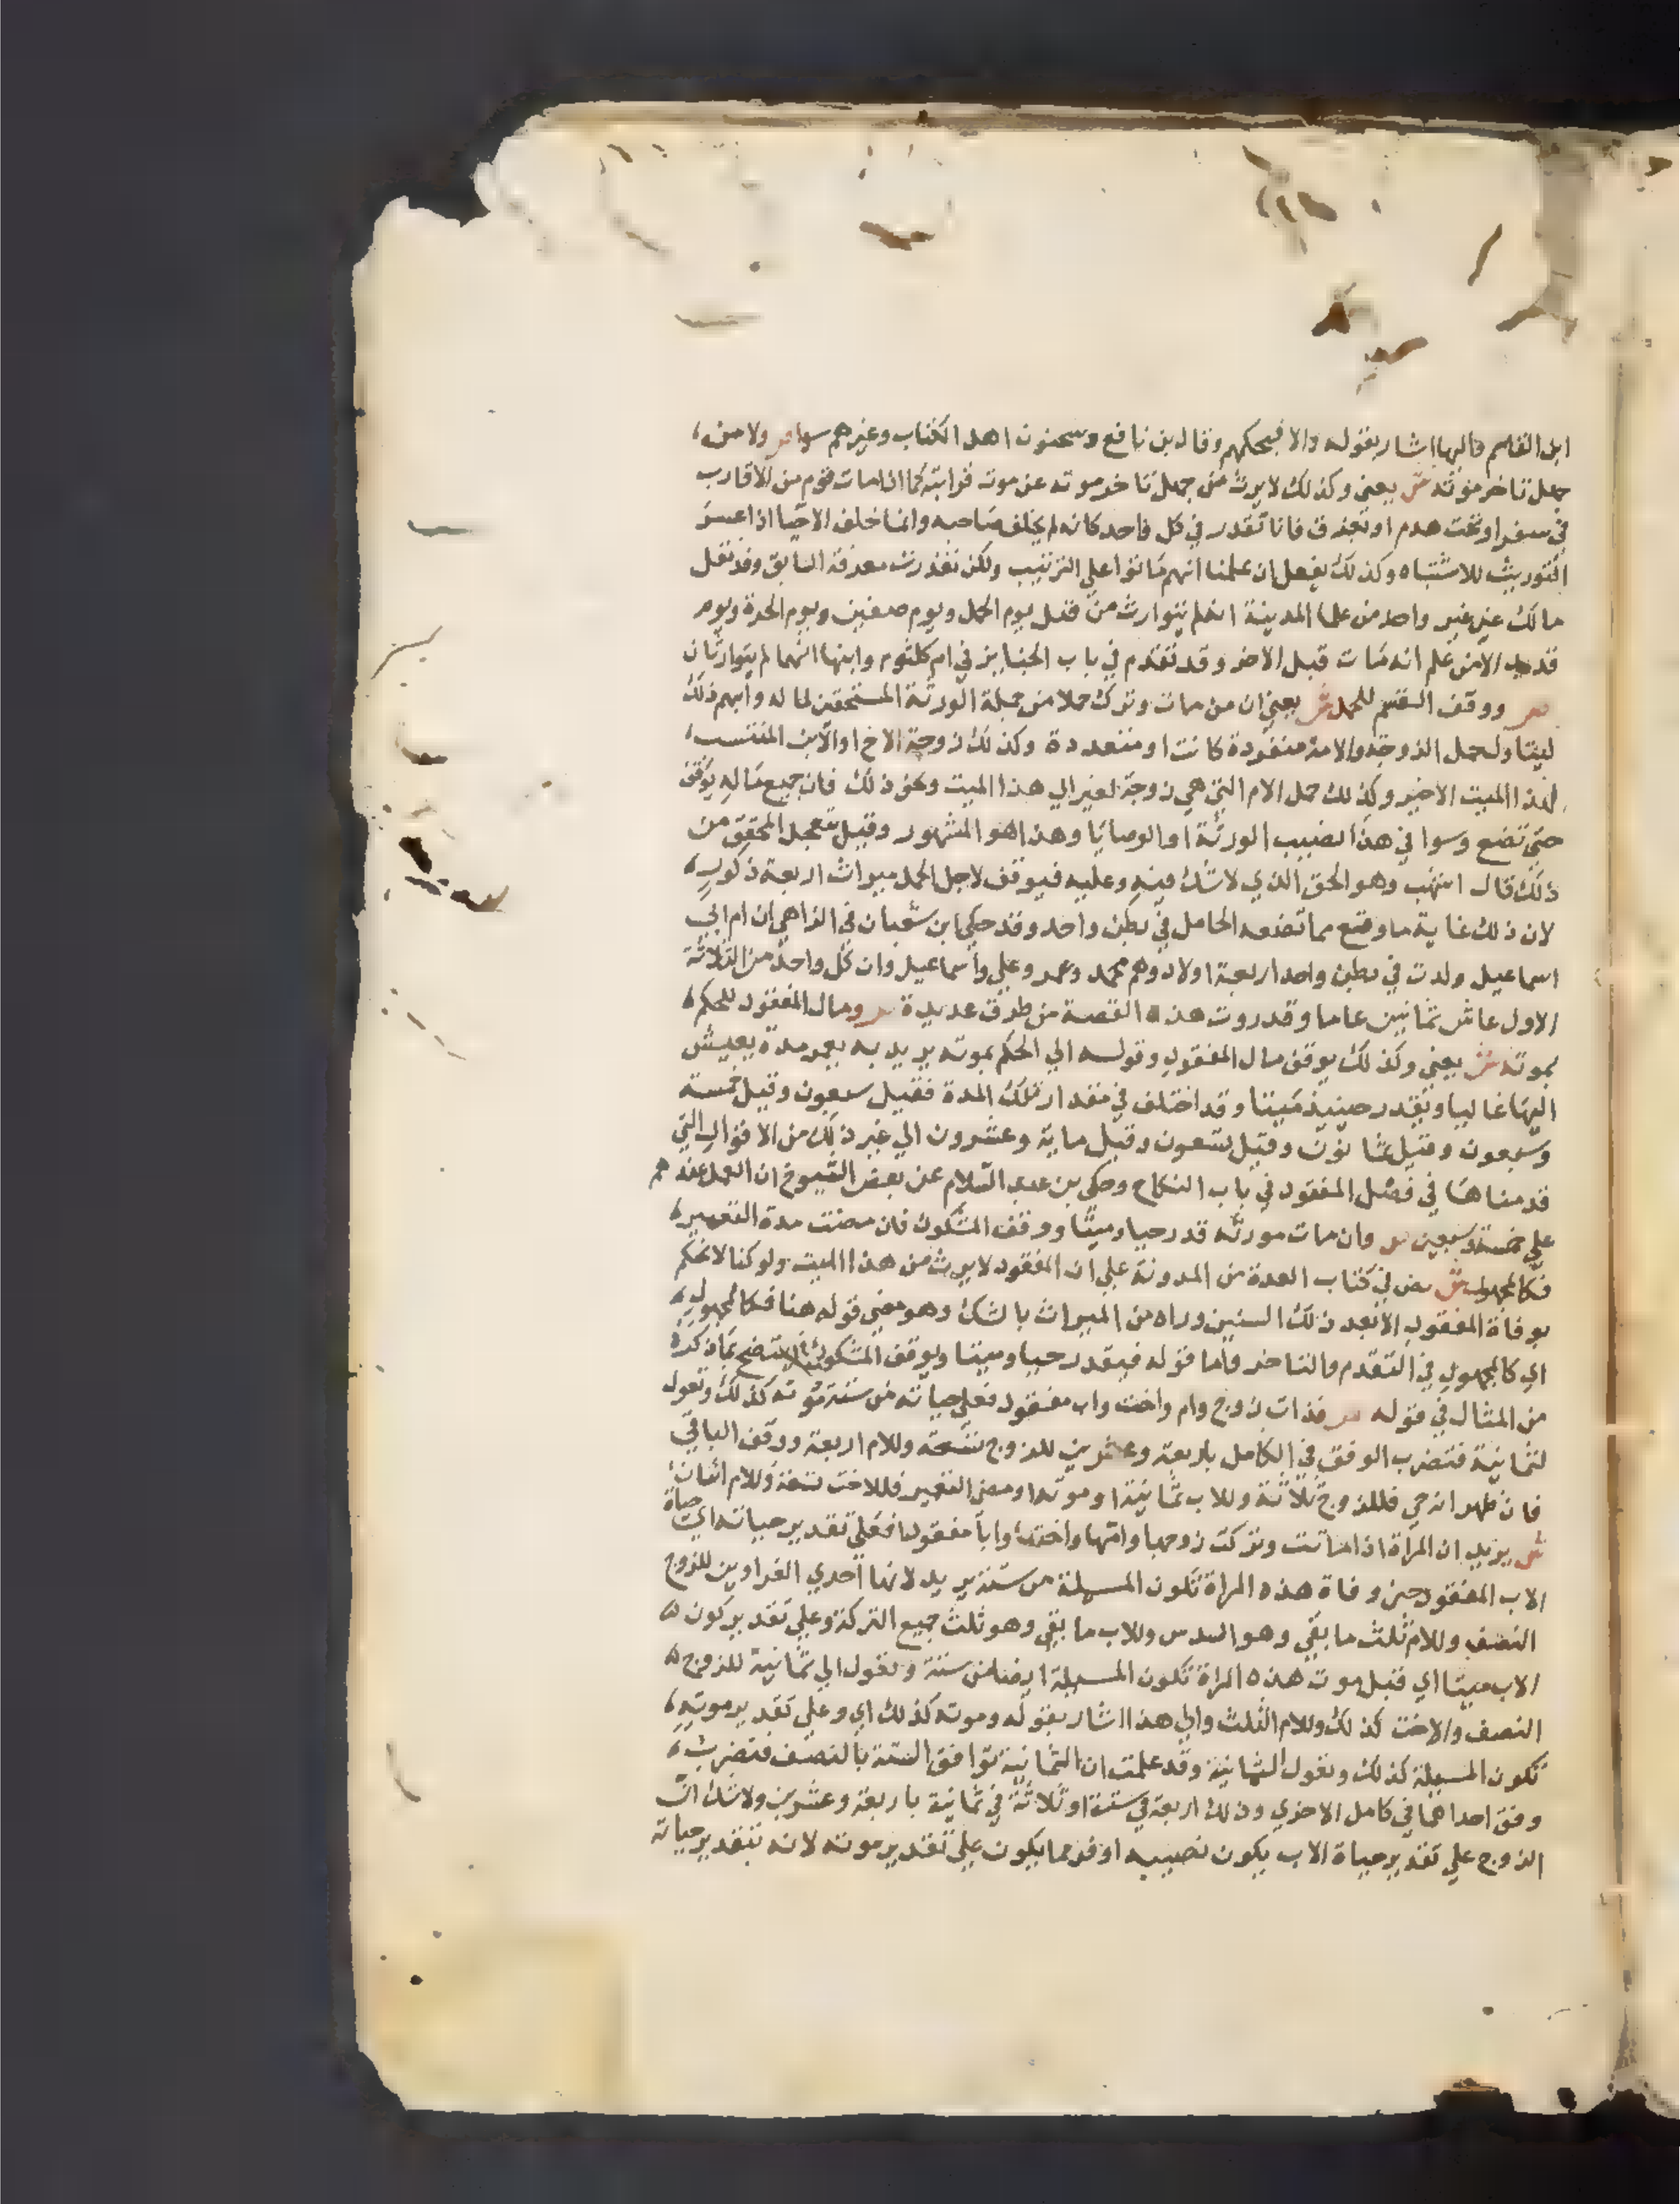 ابن القاسم واليها اشار بقوله والا فبحكمهم وقال بن نافع وسحنون اهل الكتاب وغيرهم سوا ص ولا من
جهل تاخر موته ش يعني وكذلك لا يرث من جهل تاخر موته عن موت قرابته كما اذا مات قوم من الاقارب
في سفر او تحت هدم او بغرق فانا نقدر في كل واحد كانه لم يخلف صاحبه وانما خلف الاحيا اذا عسر
التوريث للاشتباه وكذلك يفعل ان علمنا انهم ماتوا علي الترتيب ولكن تعذرت معرفة السابق وقد نقل
مالك عن غير واحد من علما المدينة انه لم يتوارث من قتل يوم الجمل ويوم صفين ويوم الحرة ويوم
قديد الا من علم انه مات قبل الاخر وقد تقدم في باب الجنايز في ام كلثوم وابنها انهما لم يتوارثان
ص ووقف القسم للحمل ش يعني ان من مات وترك حملا من جملة الورثة المستحقين لماله وابهم ذلك
ليتناول حمل الزوجة والامة منفردة كانت او متعددة وكذلك زوجة الاخ او الابن المنتسب
لهذا الميت الاخير وكذلك حمل الام التي هي زوجة لغير ابي هذا الميت ونحو ذلك فان جميع ماله يوقف
حتي تضع وسوا في هذا نصيب الورثة او الوصايا وهذا هو المشهور وقيل يتعجل المحقق من
ذلك قال اشهب وهو الحق الذي لا شك فيه وعليه فيوقف لاجل الحمل ميراث اربعة ذكور
لان ذلك غاية ما وقع مما تضعه الحامل في بطن واحد وقد حكي ابن شعبان في الزاهي ان ام ابي
اسماعيل ولدت في بطن واحد اربعة اولاد وهم محمد وعمر وعلي واسماعيل وان كل واحد من الثلاثة
الاول عاش ثمانين عاما وقد رويت هذه القصة من طرق عديدة ص ومال المفقود للحكم
بموته ش يعني وكذلك يوقف مال المفقود وقوله الي الحكم بموته يريد به بعد مدة يعيش
اليها غالبا ويقدر حينيذ ميتا وقد اختلف في مقدار تلك المدة فقيل سبعون وقيل خمسة
وسبعون وقيل ثمانون وقيل تسعون وقيل ماية وعشرون الي غير ذلك من الاقوال التي
قدمناها في فصل المفقود في باب النكاح وحكي بن عبد السلام عن بعض الشيوخ ان العمل عندهم
علي خمسة وسبعين ص وان مات مورثه قدر حيا وميتا ووقف المشكوك فان مضت مدة التعمير
فكالمجهول ش نص في كتاب العدة من المدونة علي ان المفقود لا يرث من هذا الميت ولو كنا لا نحكم
بوفاة المفقود الا بعد ذلك السنين وراه من الميراث بالشك وهو معني قوله هنا فكالمجهول
اي كالمجهول في التقدم والتاخر واما قوله فيقدر حيا وميتا ويوقف المشكوك فيتضح بما ذكره
من المثال في قوله ص فذات زوج وام واخت واب مفقود فعلي حياته من ستة وموته كذلك وتعول
لثمانية فتضرب الوفق في الكامل باربعة وعشرين للزوج تسعة وللام اربعة ووقف الباقي
فان ظهر انه حي فللزوج ثلاثة وللاب ثمانية او موته او مضي التعمير فللاخت تسعة وللام اثنان
ش يريد ان المراة اذا ماتت وتركت زوجها وامها واختها وابا مفقودا فعلي تقدير حياته اي حياة
الاب المفقود حين وفاة هذه المراة تكون المسيلة من ستة يريد لانها احدي الغراوين للزوج
النصف وللام ثلث ما بقي وهو السدس وللاب ما بقي وهو ثلث جميع التركة وعلي تقدير كون
الاب ميتا اي قبل موت هذه المراة تكون المسيلة ايضا من ستة وتعول الي ثمانية للزوج
النصف والاخت كذلك وللام الثلث والي هذا اشار بقوله وموته كذلك اي وعلي تقدير موته
تكون المسيلة كذلك وتعول لثمانية وقد علمت ان الثمانية توافق الستة بالنصف فتضرب
وفق احداهما في كامل الاخري وذلك اربعة في ستة او ثلاثة في ثمانية باربعة وعشرين ولا شك ان
الزوج علي تقدير حياة الاب يكون نصيبه اوفر مما يكون علي تقدير موته لانه بتقدير حياته